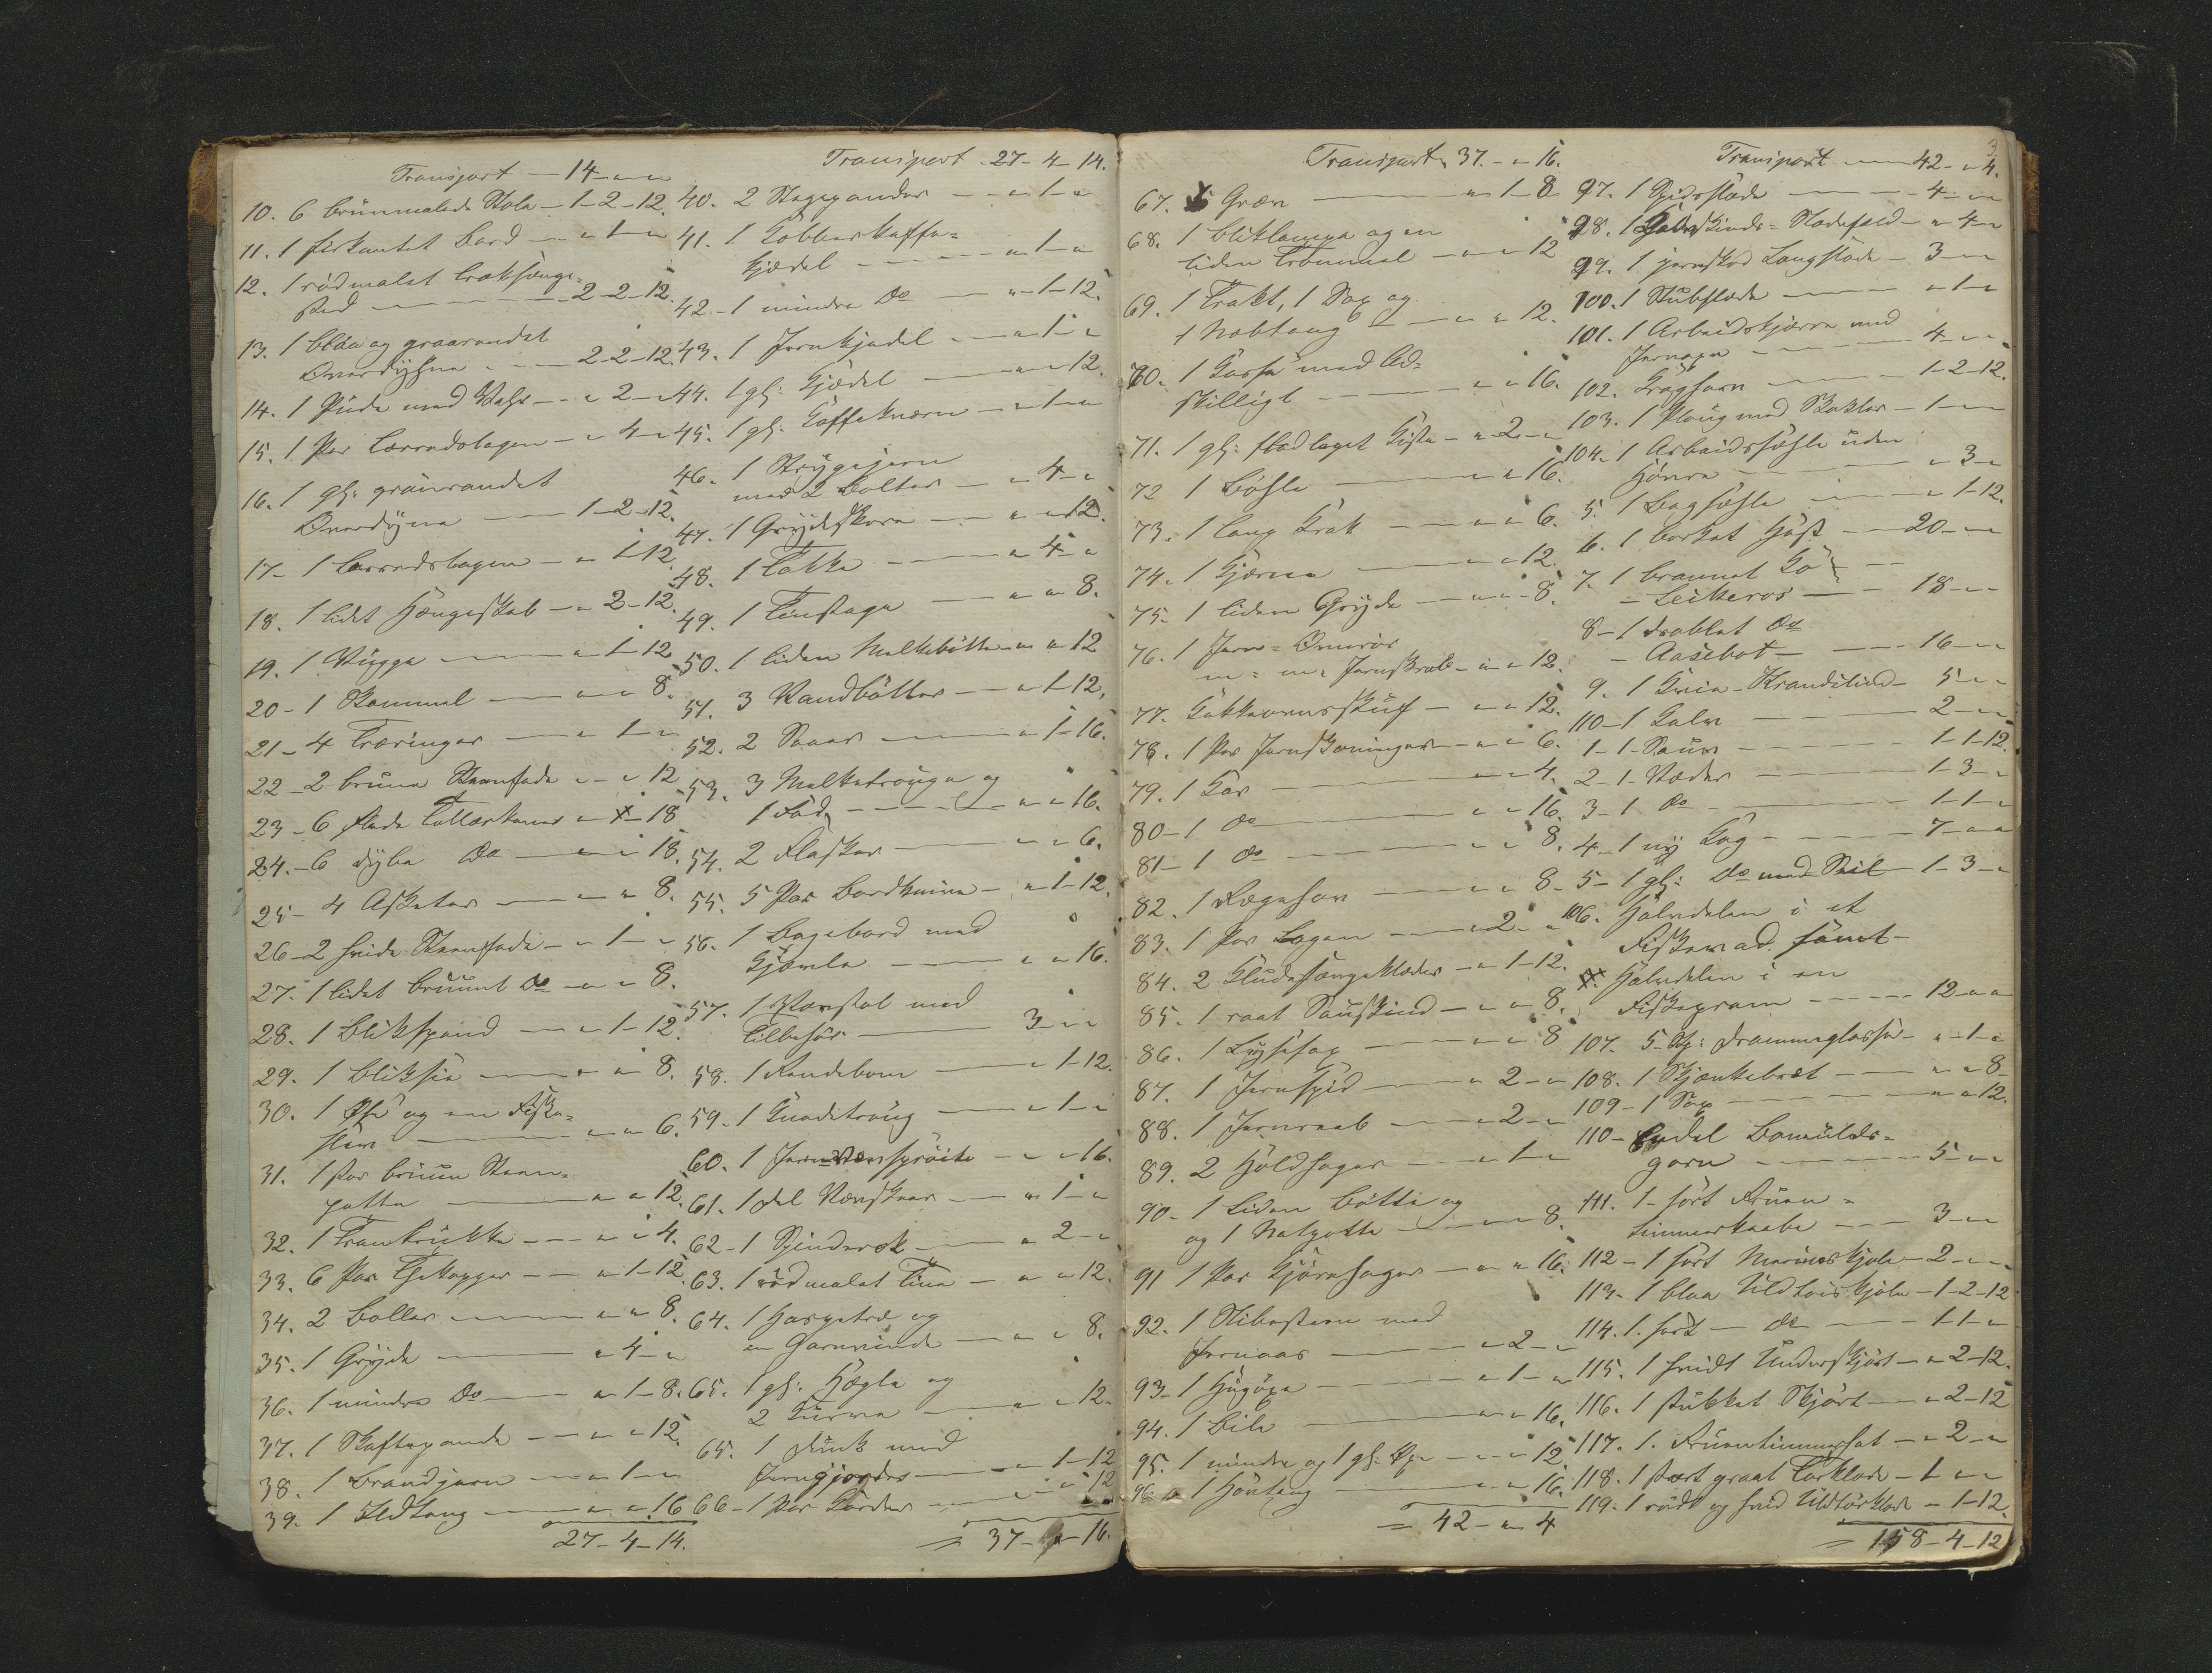 Transport — 14 - " - "
10. 6 brunmalede Stole — 1 - 2 - 12.
11. 1 firkantet Bord — " - 1 - "
12. 1 rødmalet Træksænge-
sted — 2 - 2 - 12.
13. 1 blaa og graarandet
Overdyhne — 2 - 2 - 12.
14. 1 Pude med Vahr — " 2 - "
15. 1 Par Lærredslagen — " 4 - "
16. 1 gl: grønrandet
Overdyne — 1 - 2 - 12.
17 - 1 Lærredslagen — " 1 - 12.
18. 1 lidet Hængeskab — " 2 - 12.
19. 1 Vugge — " 1 - 12
20 - 1 Skammel — " - " 8.
21 - 4 Træringer — " 1 - "
22 - 2 brune Steenfade " - " 12
23 - 6 flade Tallerkener " - 18
24. - 6 dybe Do — " - " 18.
25 - 4 Asjetter — " - " 8.
26 - 2 hvide Steenfade — " 1 - "
27. 1 lidet bruunt Do — " - " 8.
28. 1 Blikspand — " 1 - 12.
29. 1 Bliksie — " - " 8.
30. 1 Øse og en Fiske-
slev — " - " 6.
31. 1 Par bruun Steen-
potte — " - " 12.
32. 1 Trankrukke — " - " 4.
33. 6 Par Thekopper — " 1 - 12.
34. 2 Boller — " - " 8.
35. 1 Gryde — " 4 - "
36. 1 mindre Do — " 1 - 8.
37. 1 Skaftepande — " - " 12.
38. 1 Brandjern — " 1 - "
39. 1 Ildtang — " - " 16
27 - 4 - 14.
Transport . 27 - 4 - 14.
40. 2 Stegepander — " 1 - "
41. 1 Kobberkaffe-
kjedel — " 1 - "
42 - 1 mindre Do — " 1 - 12.
43. 1 Jernkjedel — " 1 - "
44. 1 gl: Kjedel — " - " 12.
45. 1 gl: Kaffekværn — " 1 - "
46. 1 Strygejern
med 2 Bolter — " 4 - "
47. 1 Grydeskore — " - " 12.
48. 1 Takke — " 4 - "
49. 1 Linstage — " - " 8.
50. 1 liden Melkebøtte — " - " 12
51. 3 Vandbøtter — " 1 - 12.
52. 2 Saaer — " 1 - 16.
53. 3 Melketrouge og
1 Fad — " - " 16.
54. 2 Flasker — " - " 6.
55. 5 Par Bordknive — " 1 - 12.
56. 1 Bagebord med
Kjævle — " - " 16.
57. 1 Vævstol med
Tilbehør — 3 - " - "
58. 1 Rendebom — " 1 - 12.
59. 1 Knadetroug — " 1 - "
60. 1 sprøite — " - " 16.
61. 1 Del Vævskeer — " 1 - "
62 - 1 Spinderok — " 2 - "
63. 1 rødmalet Tine — " - " 12.
64. 1 Haspetræ og
en Garnvinde — " - " 8.
65. 1 gl: Hægle og
2 Kurve — " - " 12.
65. 1 Dunk med
Jerngjorder — " 1 - 12
66 - 1 Par Karder — " - " 12
= 37 - " - 16.
Transport. 37. - " 16.
67. 5 Græv — " 1 - 8
68. 1 Bliklampe og en
liden Trommel — " - " 12
69. 1 Trakt, 1 Sax og
1 Nebtang — " - " 12.
70. 1 Kasse med Ad-
skilligt — " - " 16.
71. 1 gl: fladlaget Kiste — " 2 - "
72 1 Bøhle — " - " 16.
73. 1 lang Krak — " - " 6.
74. 1 Kjærne — " - " 12.
75. 1 liden Gryde — " - " 8.
76. 1 Jern-
m: m: Jernskrab — " - " 12.
77. Kakkelovnsskuf — " - " 12.
78. 1 Par Jernskoninger — " - " 6.
79. 1 Kar — " - " 4.
80 - 1 do — " - " 16.
81 - 1 do — " - " 8.
82. 1 — " - " 8.
83. 1 Par Lagen — " 2 - "
84. 2 Kludesængeklæder — " 1 - 12.
85. 1 raat Saueskind — " - " 8.
86. 1 Lysesax — " - " 8
87. 1 Jernspid — " 2 - "
88. 1 Jernraab — " 2 - "
89. 2 Høldsager — " 1 - "
90 - 1 Liden Bøtte og
og 1 Natpotte — " - " 8.
91 1 Par Kjørehager — " - " 16.
92. 1 Slibesteen med
Jernaas — " 2 - "
93 - 1 Hugøxe — " 1 - "
94. 1 Bile — " - " 16.
95. 1 mindre og 1 gl: Øxe — " - " 12
96. 1 Høvtang — " - " 16.
= 42 - " 4
Transport — 42 - " 4.
97. 1 Spidsslæde — 4 - "
98. 1 Kalveskinds-Slædefeld — " 4 - "
99. 1 jernskod Langslæde — 3 - "
100. 1 Stubslæde — " 1 - "
101. 1 Arbeidskjærre med
Jernaxe — 4 - " - "
102. — 1 - 2 - 12.
103. 1 Ploug med Skakler — 1 - "
104. 1 Arbeidssæhle uden
Hovre — " 3 - "
5. 1 Bagsæhle — " 1 - 12.
6. 1 borket Hest — 20 - "
7. 1 brannet Ko
- Leikeros — 18 - "
8 - 1 droblet Do
- Aasebot — 16 - "
9. 1 Kvie - Krandelind — 5 - "
110 - 1 Kalv — 2 - "
1 - 1 - Sau — 1 - 1 - 12.
2 - 1 - Væder — 1 - 3 - "
3 - 1 do — 1 - 1 - "
4 - 1 ny Kag — 7 - "
5 - 1 gl: Do med Seil — 1 - 3 - "
106. Halvdelen i et
Fiskevad samt
Halvdelen i en
Fiskepram — 12 - "
107. 5 Drammeglasse — " 1 - "
108. 1 Skjænkebret — " - " 8 -
109 - 1 Sax — " - " 12.
110 - Endel Bomulds-
garn — 5 - "
111. 1 - sort Fruen-
timmerkaabe — 3 - "
112 - 1 sort Merinoskjole — 2 - "
113. 1 blaa Uldtøiskjole — 1 - 2 - 12
114. 1. sort — do — 1 - 1 - "
115. 1 hvidt Underskjørt — " 2 - 12.
116. 1 stukket Skjørt — " 2 - 12
117. 1. Fruentimmerhat — " 2 - "
118. 1 stort graat Tørklæde — 1 - "
119. 1 rødt og hvid Uldtørklæde — 1 - 12.
= 158 - 4 - 12